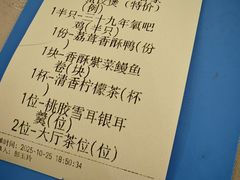 (例)
1半只-三十九年氧吧
鸡(半只)
1份-荔茸香酥鸭(份
)
1块-香酥紫菜鳗鱼
卷(块)
1杯-清香柠檬茶(杯
)
1位-桃胶雪耳银耳
羹(位)
2位-大厅茶位(位)
时间:2025-10-25 18:50:34